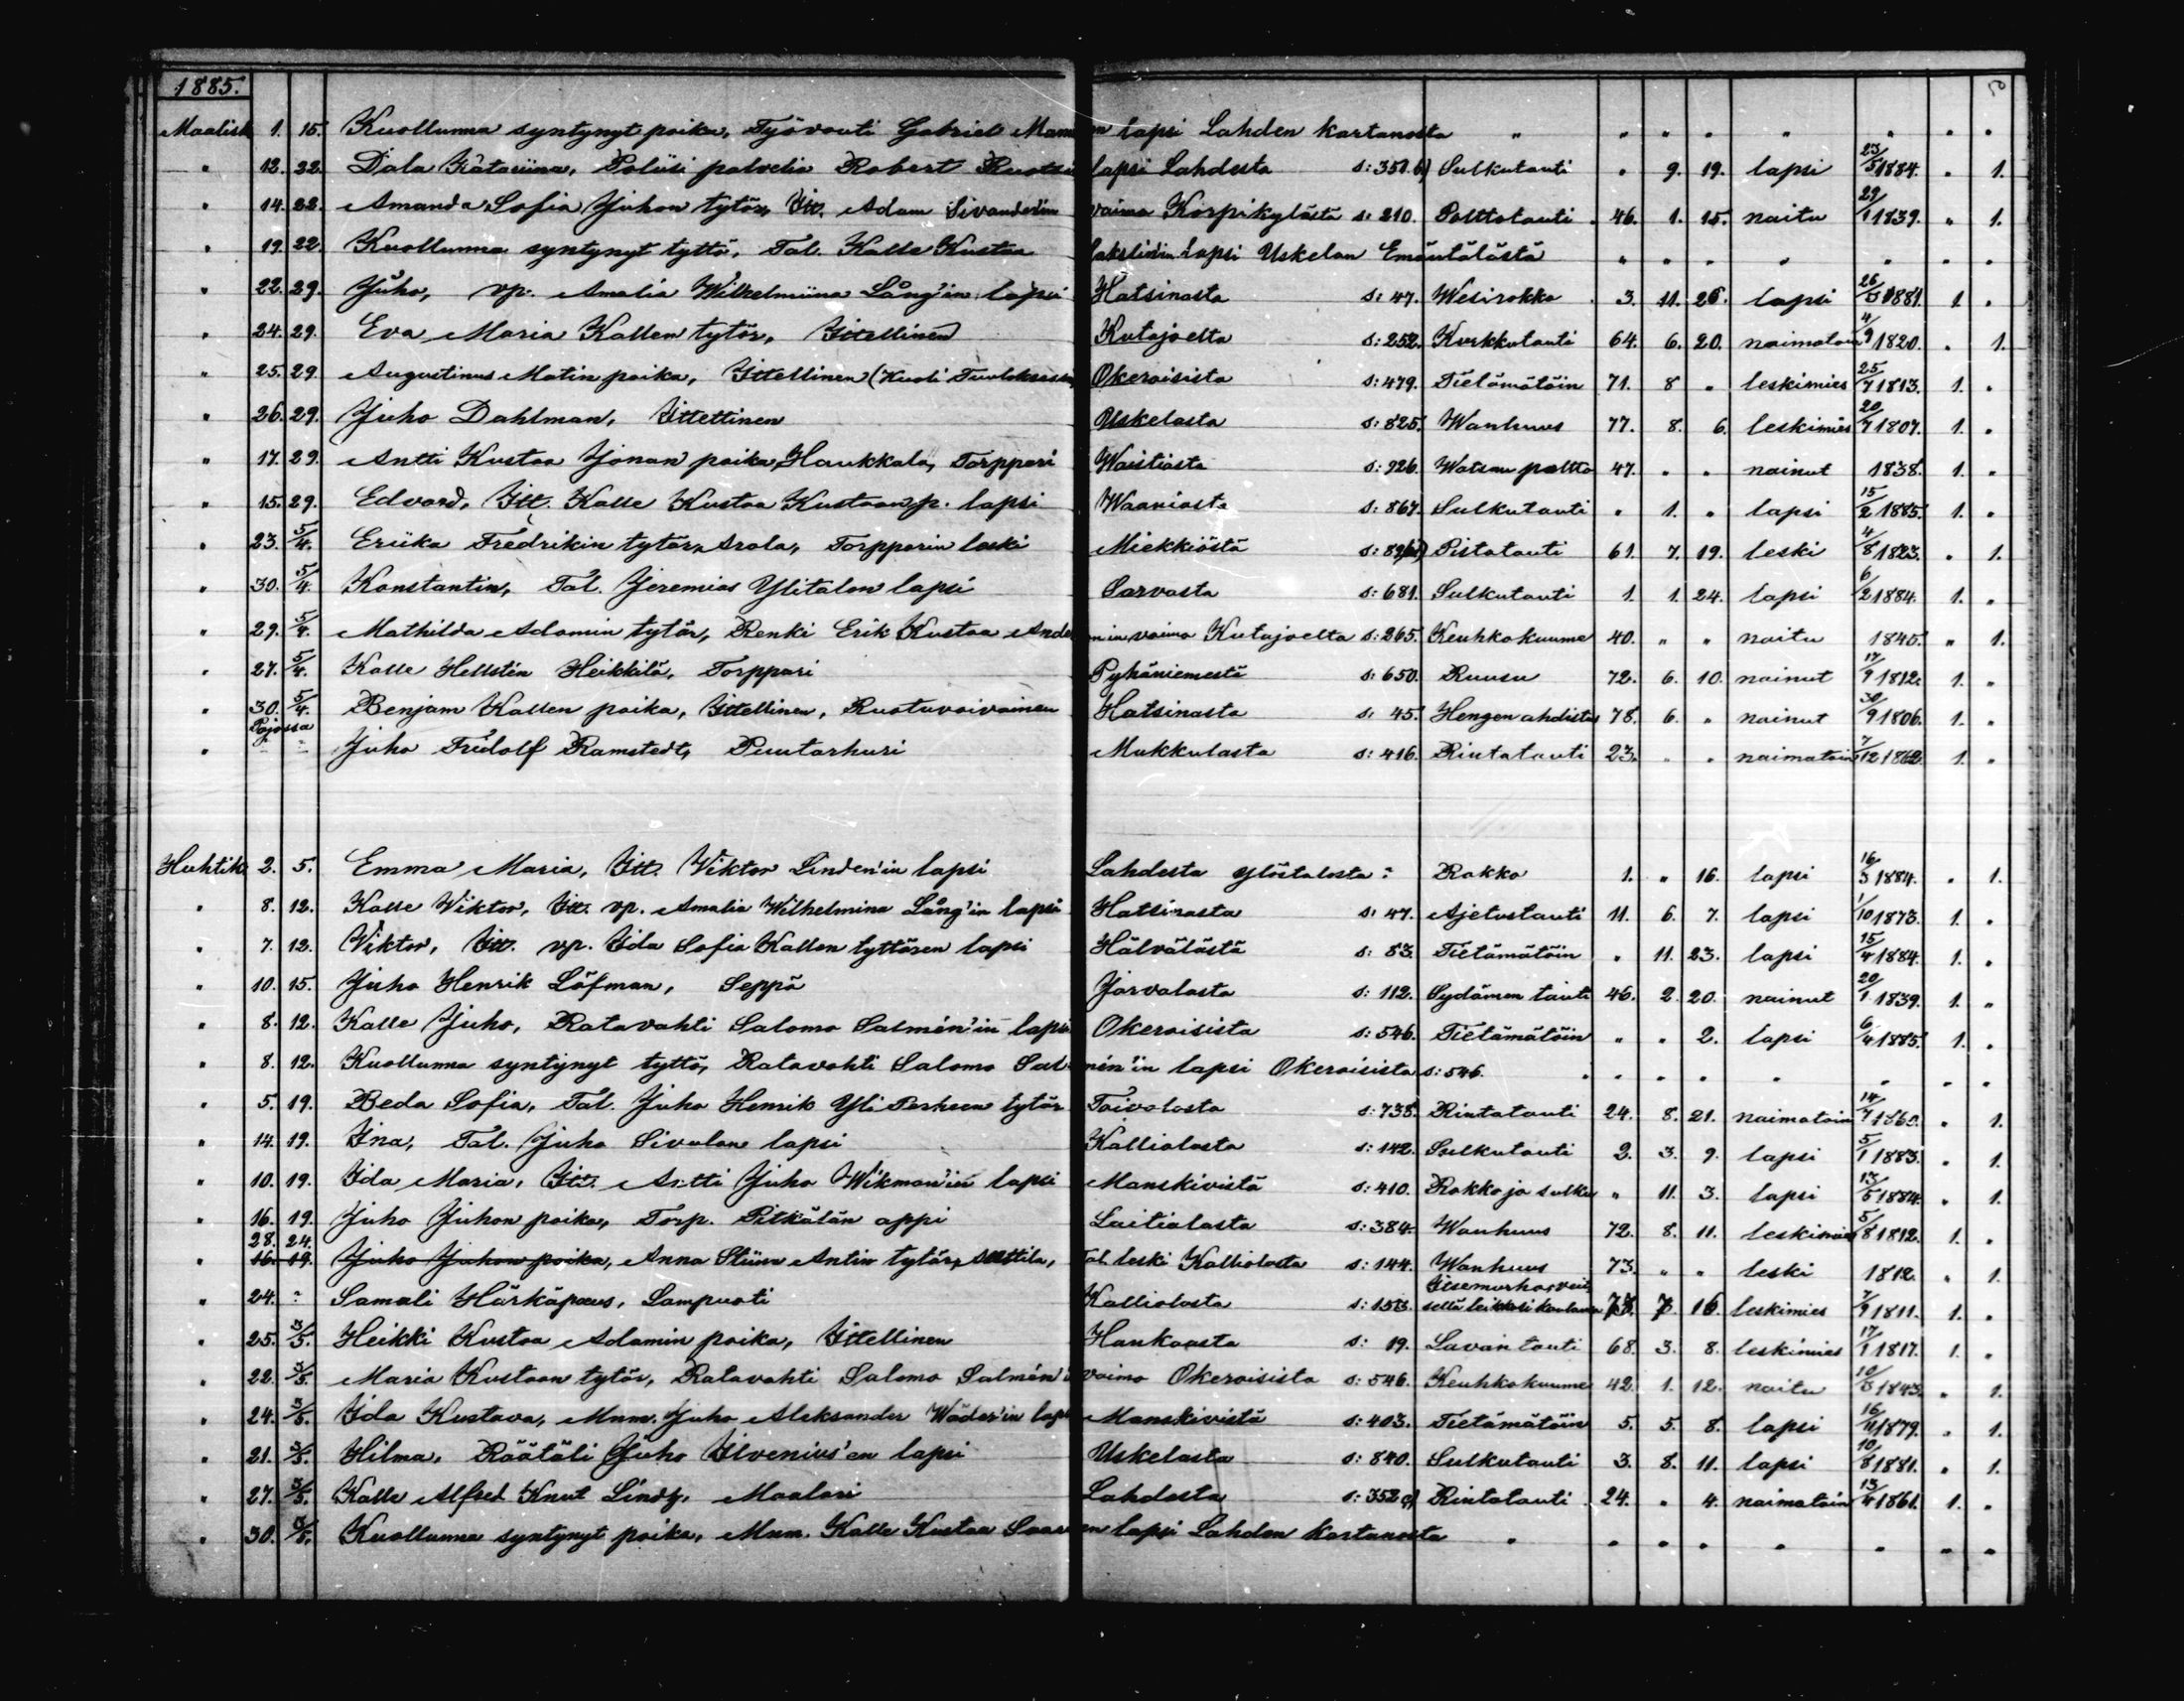 1885.
Maalisk. 1. 15. Kuollunna syntynyt poika, Työvouti Gabriel en lapsi Lahden kartanosta " " " " " " " "
" 12. 22. Katariina, Poliisi palvelia Robert lapsi Lahdesta s: 351.b) Sulkutauti " 9. 19. lapsi 23/5 1884. " 1.
" 14. 22. Amanda Sofia Juhon tytär, Itt. Adam Sivander'in vaimo Korpikylästä s: 210. Polttotauti 46. 1. 15. naitu 29/1 1839. " 1.
" 19. 22. Kuollunna syntynyt tyttö, Tal. Kalle Kustaa lapsi Uskelan Emäntälästä " " " " " " "
" 22. 29. Juho, vp. Amalia Wilhelmiina Lång'in lapsi Hatsinasta s: 47. Wesirokko 3. 11. 26. lapsi 26/3 1881. 1. "
" 24. 29. Eva Maria Kallen tytär, Ittellinen Kutajoelta s: 252. Kurkkutauti 64. 6. 20. naimatoin 4/9 1820. " 1.
" 25. 29. Augustinus Matin poika, Ittellinen (Kuoli Okeroisista s: 479. Tietämätöin 71. 8 " leskimies 25/7 1813. 1. "
" 26. 29. Juho Dahlman, Ittettinen Uskelasta s: 825. Wanhuus 77. 8. 6. leskimies 20/7 1807. 1. "
" 17. 29. Antti Kustaa Jonan poika, Haukkala, Torppari s: 926. Watsan poltto 47. " " nainut 1838. 1. "
" 15. 29. Edvard, Itt. Kalle Kustaa Kustaan p. lapsi Waaniasta s: 867. Sulkutauti " 1. " lapsi 15/2 1885. 1. "
" 23. 5/4. Eriika Fredrikin tytär, Arola, Torpparin leski Miekkiöstä Pistotauti 61. 7. 19. leski 4/8 1823. " 1.
" 30. 5/4. Konstantin, Tal. Jeremias Ylitalon lapsi Sarvasta s: 681. Sulkutauti 1. 1. 24. lapsi 6/2 1884. 1. "
" 29. 5/4. Mathilda Adamin tytär, Renki Erik Kustaa vaimo Kutajoelta s: 265. Keuhkokuume 40. " " naitu 1845. " 1.
" 27. 5/4. Kalle Hellstén Heikkilä, Torppari Pyhäniemestä s: 650. Ruusu 72. 6. 10. nainut 17/9 1812. 1. "
" 30. 5/4. Benjam Kallen poika, Ittellinen, Ruotuvaivainen Hatsinasta s: 45. Hengen ahdistus 78. 6. " nainut 30/9 1806. 1. "
Pojossa
" " " Juho Fridolf Ramstedt, Puutarhuri Mukkulasta s: 416. Rintatauti 23. " " naimatoin 7/12 1862. 1. "
Huhtik. 2. 5. Emma Maria, Itt. Viktor Linden'in lapsi Lahdesta Ylöstalosta : Rokko 1. " 16. lapsi 16/3 1884. " 1.
" 8. 12. Kalle Wiktor, Itt. vp. Amalia Wilhelmina Lång'in lapsi Hatsinasta s: 47. Ajetustauti 11. 6. 7. lapsi 1/10 1873. 1. "
" 7. 12. Viktor, Itt. vp. Ida Sofia Kallen tyttären lapsi Hälvälästä s: 83. Tietämätöin " 11. 23. lapsi 15/4 1884. 1. "
" 10. 15. Juho Henrik Löfman, Seppä Jarvalasta s: 112. Sydämen tauti 46. 2. 20. nainut 20/1 1839. 1. "
" 8. 12. Kalle Juho, Ratavahti Salomo Salmén'in lapsi Okeroisista s: 546. Tietämätöin " " 2. lapsi 6/4 1885. 1. "
" 8. 12. Kuollunna syntynyt tyttö, Ratavahti Salomo Salmén'in lapsi Okeroisista s: 546. " " " " " " " "
" 5. 19. Beda Sofia, Tal. Juho Henrik Yli Perheen tytär Toivolasta s: 738. Rintatauti 24. 8. 21. naimatoin 14/7 1860. " 1.
" 14. 19. Ina, Tal. Juho Sivulan lapsi Kalliolasta s: 142. Sulkutauti 2. 3. 9. lapsi 5/1 1883. " 1.
" 10. 19. Ida Maria, Itt. Antti Juho Wikman'in lapsi Manskivistä s: 410. Rokko ja sulku " 11. 3. lapsi 13/5 1884. " 1.
" 16. 19. Juho Juhon poika, Torp. Pitkälän appi Laitialasta s: 384. Wanhuus 72. 8. 11. leskimies 5/8 1812. 1. "
28. 24.
" 16. 19. Juho Juhon poika, Anna Stiina Antin tytär, Tal. leski Kalliolasta s: 144. Wanhuus 73. " " leski 1812. " 1.
" 24. : Samali Härkäpaus, Lampuoti Kalliolasta 16. leskimies 7/9 1811. 1. "
" 25. 3/5. Heikki Kustaa Adamin poika, Ittellinen Haukaasta s: 19. Lavan tauti 68. 3. 8. leskimies 17/1 1817. 1. "
" 22. 3/5. Maria Kustaan tytär, Ratavahti Salomo Salmén' vaimo Okeroisista s: 546. Keuhkokuume 42. 1. 12. naitu 10/3 1843. " 1.
" 24. 3/5. Ida Kustava, Mnm. Juho Aleksander Wäder'in lapsi Manskivistä s: 403. Tietämätöin 5. 5. 8. lapsi 16/11 1879. " 1.
" 21. 3/5. Hilma, Räätäli Juho Ilvenius'en lapsi Uskelasta s: 840. Sulkutauti 3. 8. 11. lapsi 10/8 1881. " 1.
" 27. 3/5. Kalle Alfred Knut Lindh, Maalari Lahdesta s: 352 Rintatauti 24. " 4. naimatoin 13/4 1861. 1. "
" 30. 3/5. Kuollunna syntynyt poika, Mnm. Kalle Kustaa Saaren lapsi Lahden kartanosta " " " " " " " "